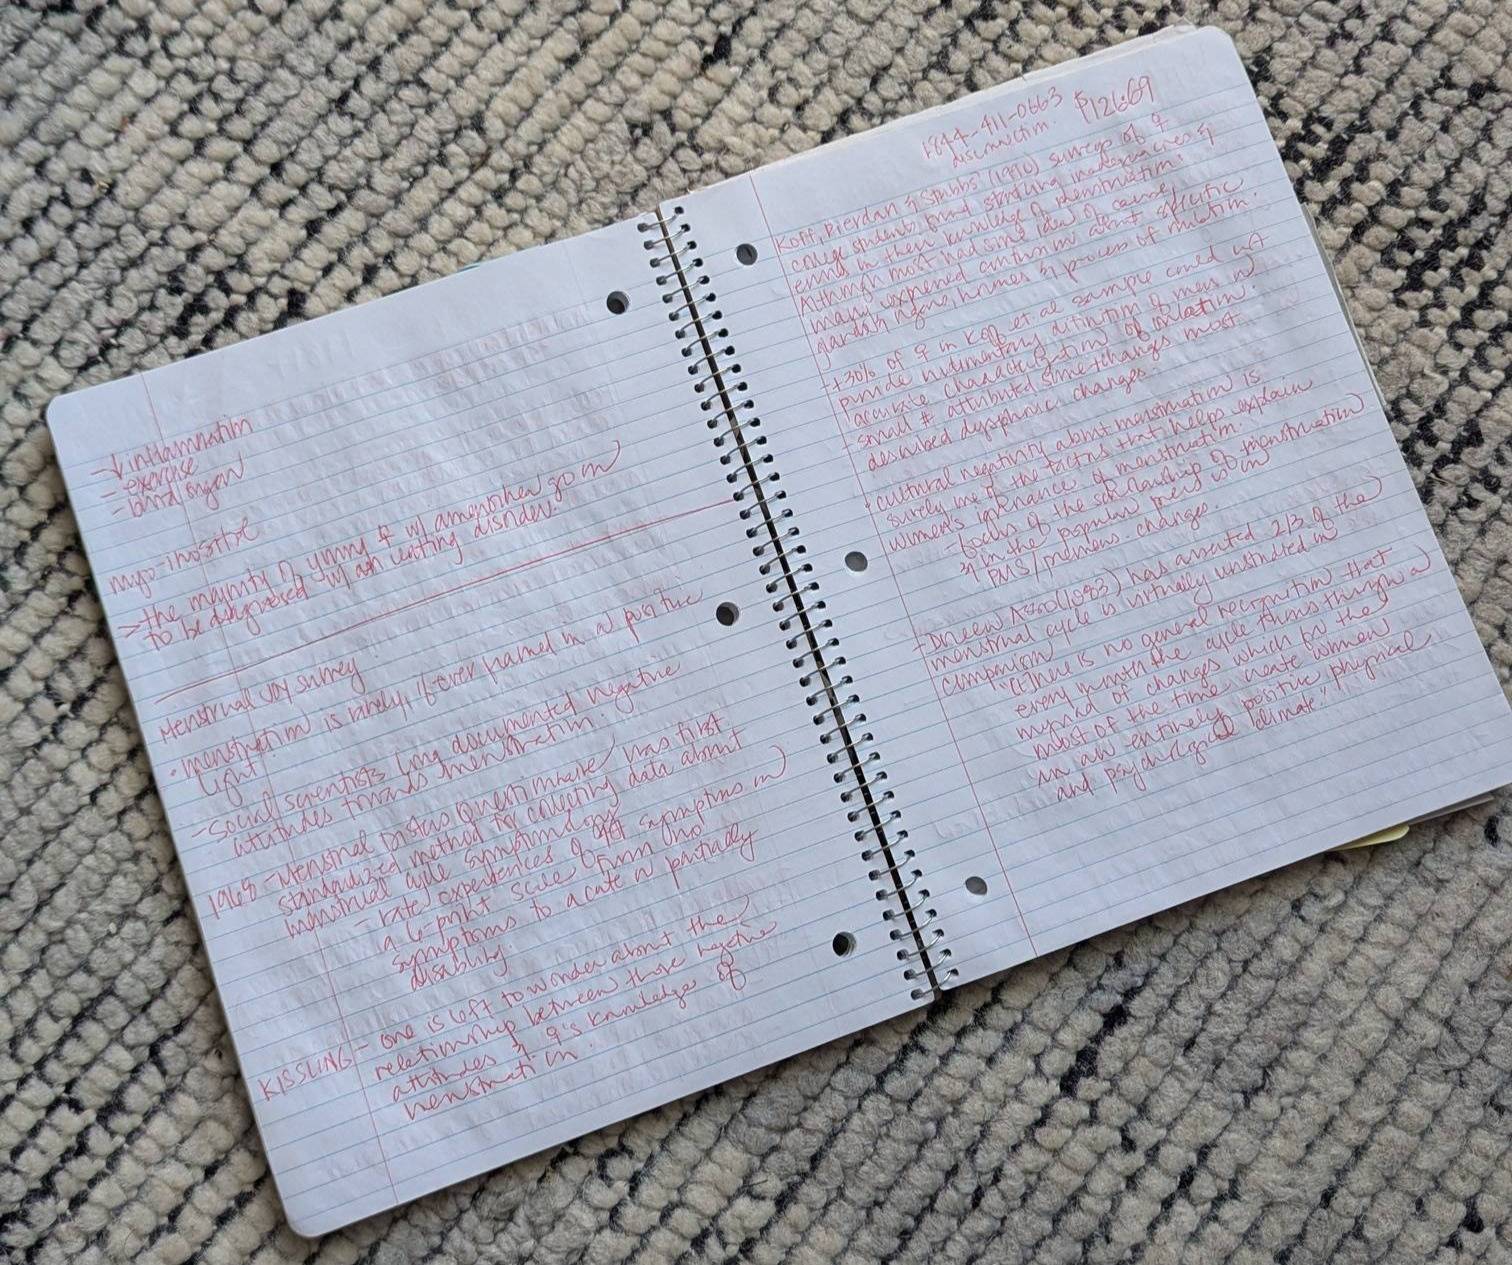 - ↓ inflammation
- exercise
- 
myo-inositol
→ the majority of young ♀ w/ amenorrhea go on
to be diagnosed w/ an eating disorder.
Menstrual joy survey
• menstruation is rarely, if ever framed in a positive
light.
- social scientists long documented negative
attitudes towards menstruation.
1968 - Menstrual Distress Questionnaire was first
standardized method for collecting data about
menstrual cycle symptomology
- rate experiences of symptoms on
a 6-point scale form no
symptoms to acute or partially
disabling.
KISSLING - one is left to wonder about the
relationship between those negative
attitudes & ♀'s knowledge of
menstruation.
1844-411-0663 P12669
disconnection.
Koff, Rierdan & Stubbs' (1990) survey of ♀
college students found startling inadequacies &
errors in their knowledge of menstruation.
Although most had some idea of cause,
many expressed confusion about specific
garding hormones & process of ovulation.
- +30% of ♀ in Koff et al sample could not
provide rudimentary definition of mens or
accurate characterization of ovulation.
small # attributed some changes most
described dysphoric changes.
• cultural negativity about menstruation is
surely one of the factors that helps explain
women's ignorance of menstruation.
- focus of the scholarship of menstruation
& in the popular press is on
PMS/premens. changes.
- Doreen Asso (1983) has asserted 2/3 of the
menstrual cycle is virtually unstudied in
comparison
"(t)here is no general recognition that
every month the cycle forms through a
myriad of changes which for the
most of the time create women
in an entirely positive physical
and psychological climate."